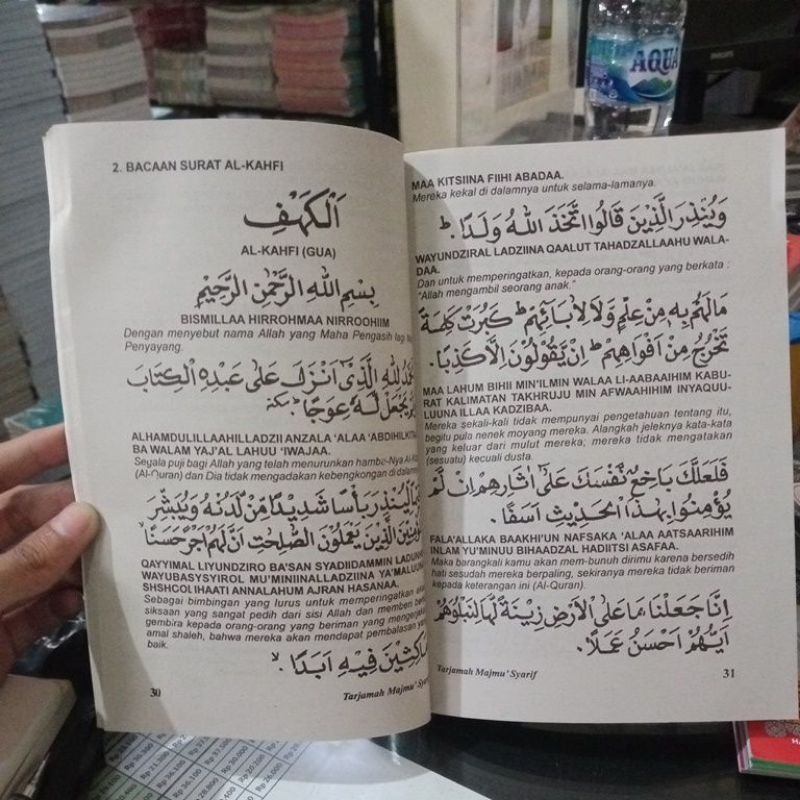 2. BACAAN SURAT AL-KAHFI
اَلْكَهْفِ
AL-KAHFI (GUA)
بِسْمِ اللهِ الرَّحْمٰنِ الرَّحِيْمِ
BISMILLAA HIRROHMAA NIRROOHIIM
Dengan menyebut nama Allah yang Maha Pengasih lagi
Penyayang.
لِلّٰهِ الَّذِيْٓ اَنْزَلَ عَلٰى عَبْدِهِ الْكِتَابَ
يَجْعَلْ لَهُ عِوَجًا
ALHAMDULILLAAHILLADZII ANZALA 'ALAA 'ABDIHILKITA
BA WALAM YAJ'AL LAHUU 'IWAJAA.
Segala puji bagi Allah yang telah menurunkan hamba-Nya Al-Ki
(Al-Quran) dan Dia tidak mengadakan kebengkongan di dalamn
لِيُنْذِرَ بَأْسًا شَدِيْدًا مِّنْ لَّدُنْهُ وَيُبَشِّرَ
الَّذِيْنَ يَعْمَلُوْنَ الصّٰلِحٰتِ اَنَّ لَهُمْ اَجْرًا حَسَنًا
QAYYIMAL LIYUNDZIRO BA'SAN SYADIIDAMMIN LADUNH
WAYUBASYSYIROL MU'MINIINALLADZIINA YA'MALUUN
SHSHCOLIHAATI ANNALAHUM AJRAN HASANAA.
Sebagai bimbingan yang lurus untuk memperingatkan akan
siksaan yang sangat pedih dari sisi Allah dan memberi be
gembira kepada orang-orang yang beriman yang mengerjak
amal shaleh, bahwa mereka akan mendapat pembalasan yang
baik.
مَاكِثِيْنَ فِيْهِ اَبَدًا
30
Tarjamah Majmu' Syarif
MAA KITSIINA FIIHI ABADAA.
Mereka kekal di dalamnya untuk selama-lamanya.
وَيُنْذِرَ الَّذِيْنَ قَالُوا اتَّخَذَ اللهُ وَلَدًا
WAYUNDZIRAL LADZIINA QAALUT TAHADZALLAAHU WALA-
DAA.
Dan untuk memperingatkan, kepada orang-orang yang berkata :
"Allah mengambil seorang anak."
مَا لَهُمْ بِهٖ مِنْ عِلْمٍ وَّلَا لِاٰبَائِهِمْ ۗ كَبُرَتْ كَلِمَةً
تَخْرُجُ مِنْ اَفْوَاهِهِمْ ۗ اِنْ يَّقُوْلُوْنَ اِلَّا كَذِبًا
MAA LAHUM BIHII MIN'ILMIN WALAA LI-AABAAIHIM KABU-
RAT KALIMATAN TAKHRUJU MIN AFWAAHIHIM INYAQUU-
LUUNA ILLAA KADZIBAA.
Mereka sekali-kali tidak mempunyai pengetahuan tentang itu,
begitu pula nenek moyang mereka. Alangkah jeleknya kata-kata
yang keluar dari mulut mereka; mereka tidak mengatakan
(sesuatu) kecuali dusta.
فَلَعَلَّكَ بَاخِعٌ نَّفْسَكَ عَلٰى اٰثَارِهِمْ اِنْ لَّمْ
يُؤْمِنُوْا بِهٰذَا الْحَدِيْثِ اَسَفًا
FALA'ALLAKA BAAKHI'UN NAFSAKA 'ALAA AATSAARIHIM
INLAM YU'MINUU BIHAADZAL HADIITSI ASAFAA.
Maka barangkali kamu akan mem-bunuh dirimu karena bersedih
hati sesudah mereka berpaling, sekiranya mereka tidak beriman
kepada keterangan ini (Al-Quran).
اِنَّا جَعَلْنَا مَا عَلَى الْاَرْضِ زِيْنَةً لَّهَا لِنَبْلُوَهُمْ
اَيُّهُمْ اَحْسَنُ عَمَلًا
Tarjamah Majmu' Syarif
31
AQUA